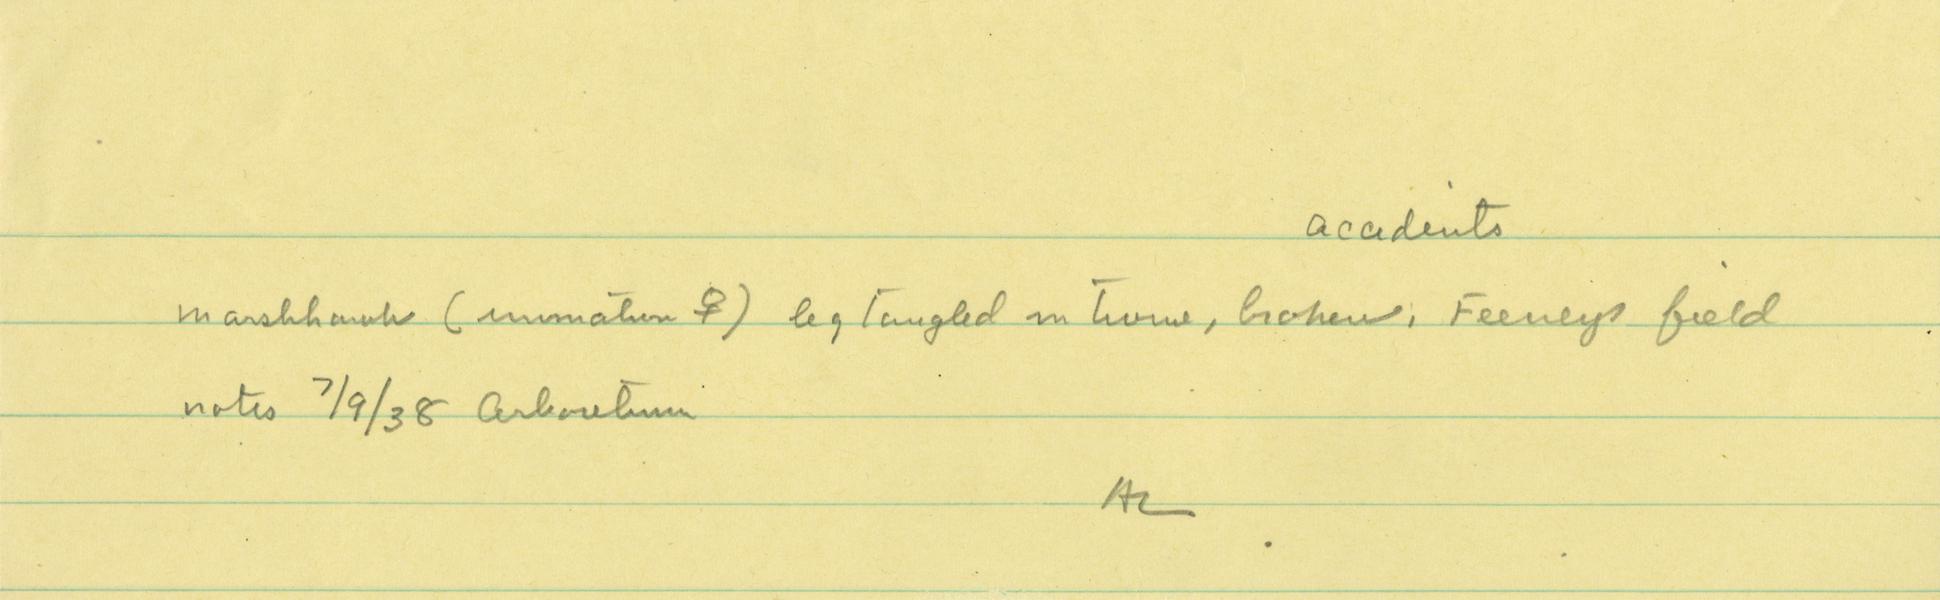 accidents
marshhawk (immature ♀) leg tangled in twine, broken; Feeneys field
notes 7/9/38 Arboretum
AL